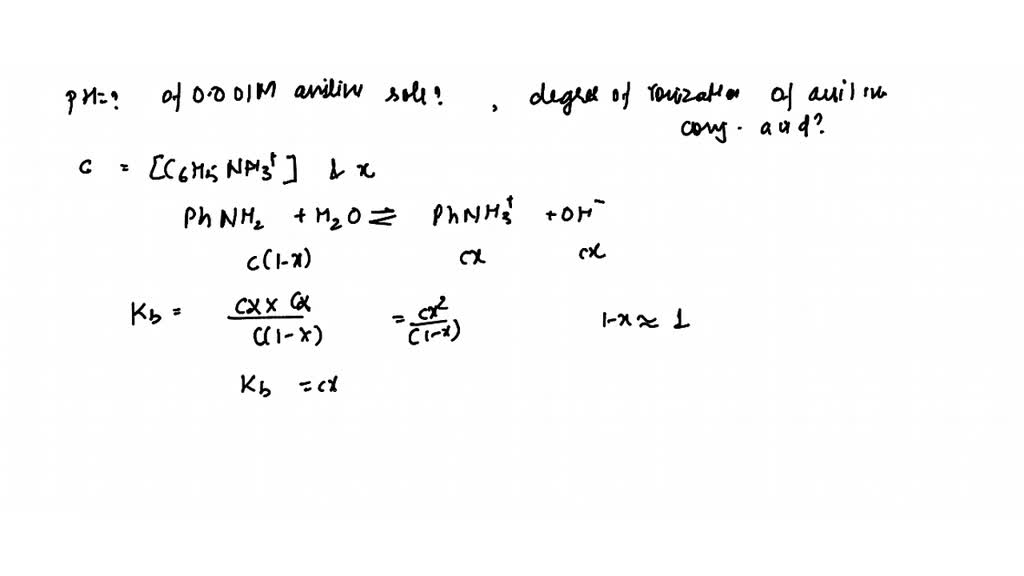 pH=? of 0.001M aniline soln? , degree of ionization of aniline
conj. acid?
c = [C6H5NH3+] & x
PhNH2 + H2O ⇌ PhNH3+ + OH-
c(1-x) cx cx
Kb = cx × cx / c(1-x) = cx² / (1-x) 1-x ≈ 1
Kb = cx